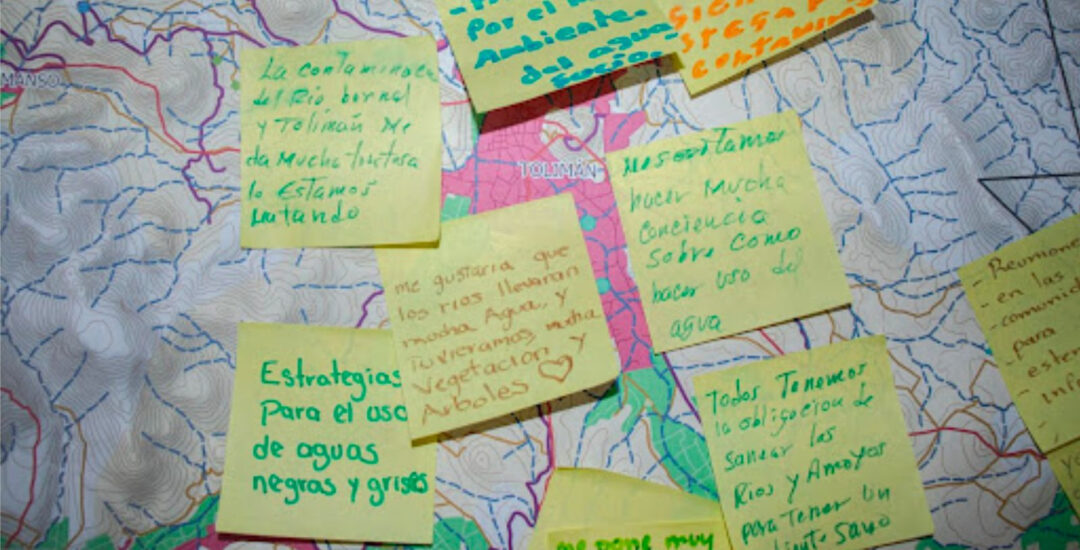 MANSO
La contaminac
del Rio bernal
y Tolimán Me
da Mucha tristesa
lo Estamos
Matando
Por el
Ambiente.
del agua
sucia.
CONTAMINA
TOLIMÁN
Nesesitamos
hacer Mucha
Conciencia
Sobre Como
hacer uso del
agua
me gustaria que
los rios llevaran
mucha Agua, y
Tuvieramos mucha
Vegetacion y
Arboles ♡
Estrategias
Para el uso
de aguas
negras y grises
Todos Tenemos
la obligacion de
sanear las
Rios y Arroyos
para Tener un
Sano
- Reunione
- en las
- comunid
- para
- exter
- inf
me pone muy